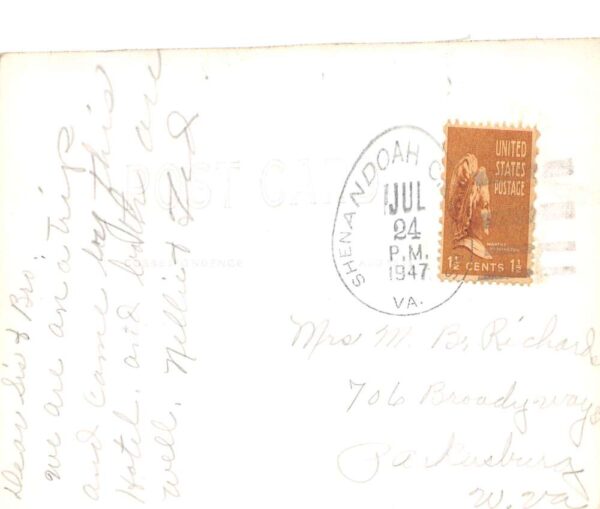 Dear Sis & Bro:
we are on a trip
and came by this
Hotel. and both are
well. Nellie & Ted
POST CARD
CORRESPONDENCE
SHENANDOAH
JUL
24
P.M.
1947
VA.
UNITED
STATES
POSTAGE
MARTHA
WASHINGTON
1½ CENTS 1½
Mrs M. B. Richards
706 Broadyway
Parkersburg
W. Va